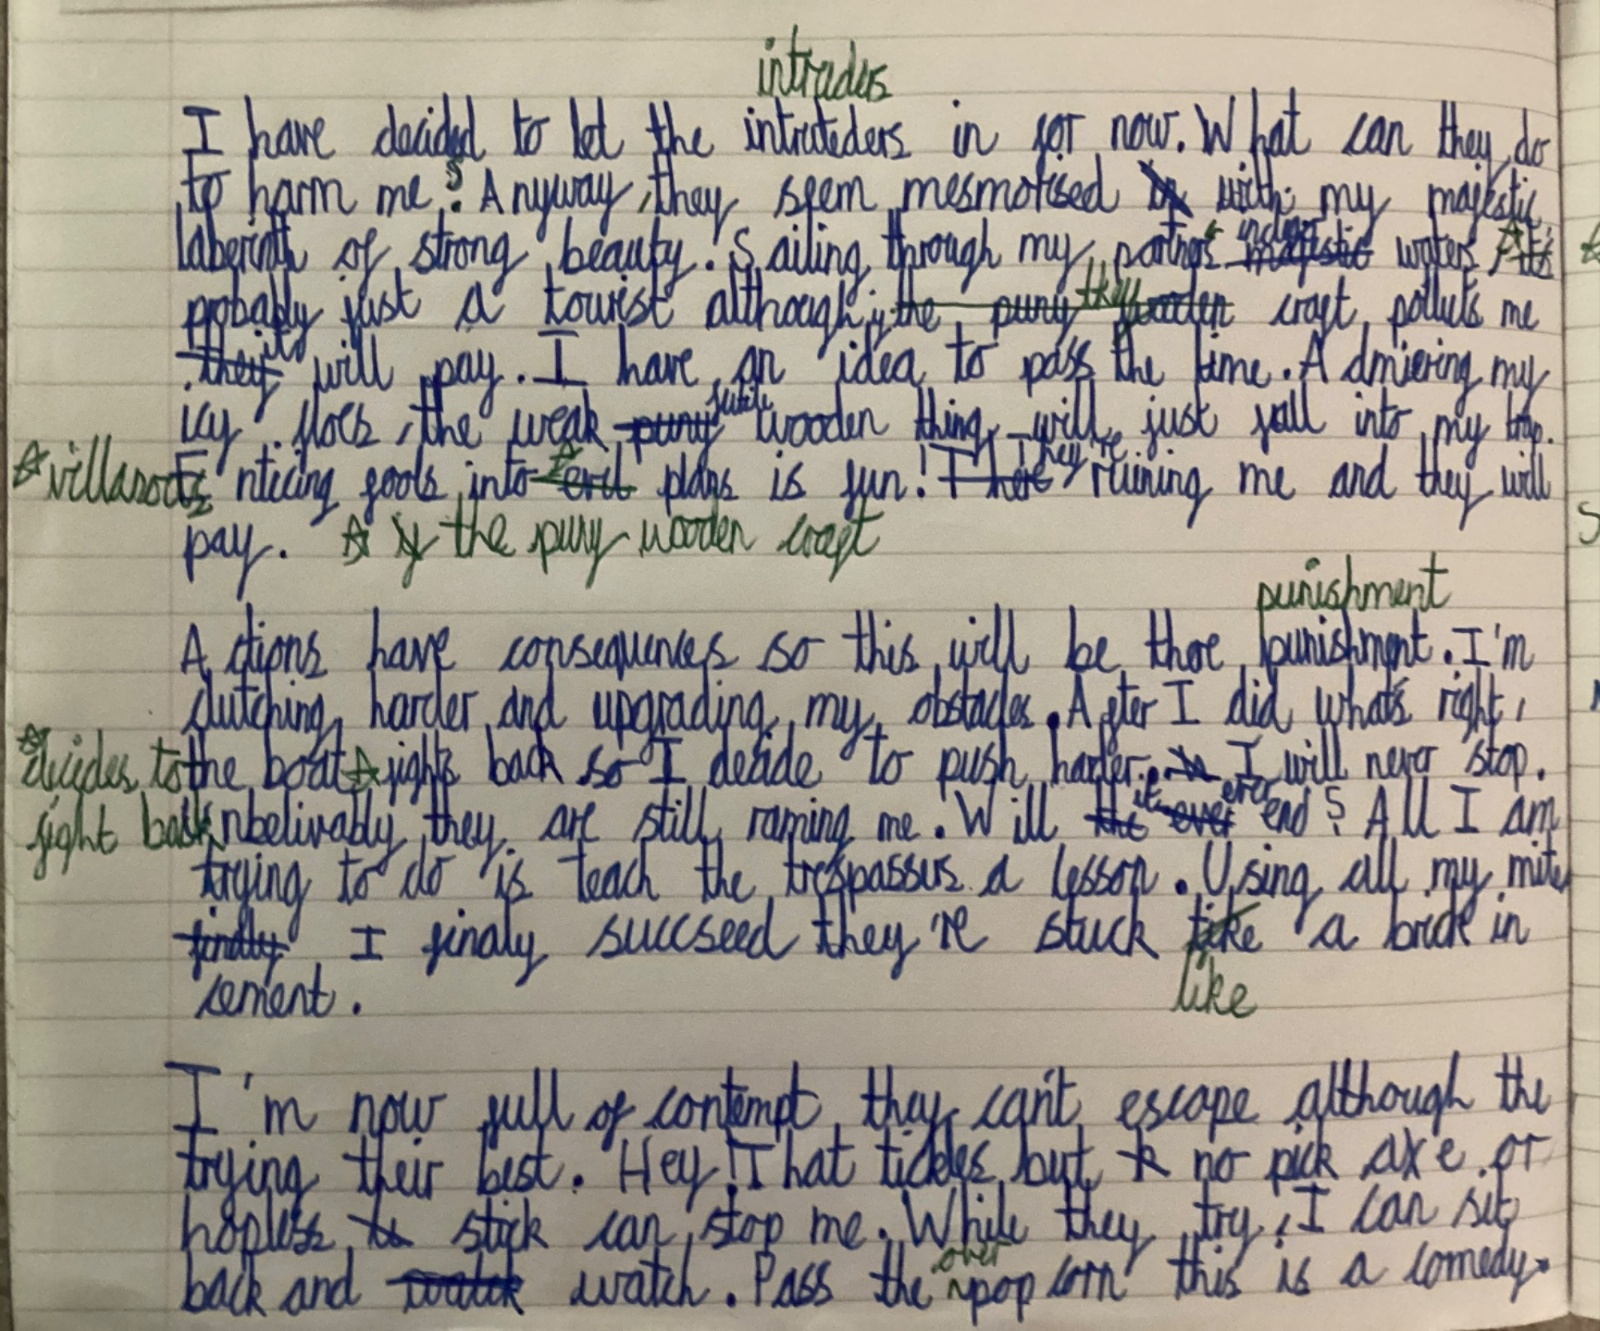 intruders
I have decided to let the intruteders in for now. What can they do
to harm me? Anyway, they seem mesmorised with my majestic
laberinth of strong beauty. Sailing through my partners waters It's
probably just a tourist although, the puny they wooden craft polluts me
they it will pay. I have an idea to pass the time. Admiering my
icy floes, the weak puny futile wooden thing will just fall into my trap.
☆villanocts Enticing fools into ☆ evil plans is fun! There They're ruining me and they will
pay. ☆ the puny wooden craft
punishment
Actions have consequences so this will be thoe punishment. I'm
clutching harder and upgrading my obstacles. After I did what's right,
☆decides to the boat ☆ fights back so I decide to push harder. I will never stop.
fight back Unbelivably they are still raming me. Will the it ever ever end? All I am
trying to do is teach the trespassus a lesson. Using all my mite
finally I finaly succseed they're stuck like a brick in
cement. like
I'm now full of contempt they can't escape although the
trying their best. Hey! That tickles but no pick axe or
hopless stick can stop me. While they try, I can sit
back and watch. Pass the over popcorn this is a comedy.